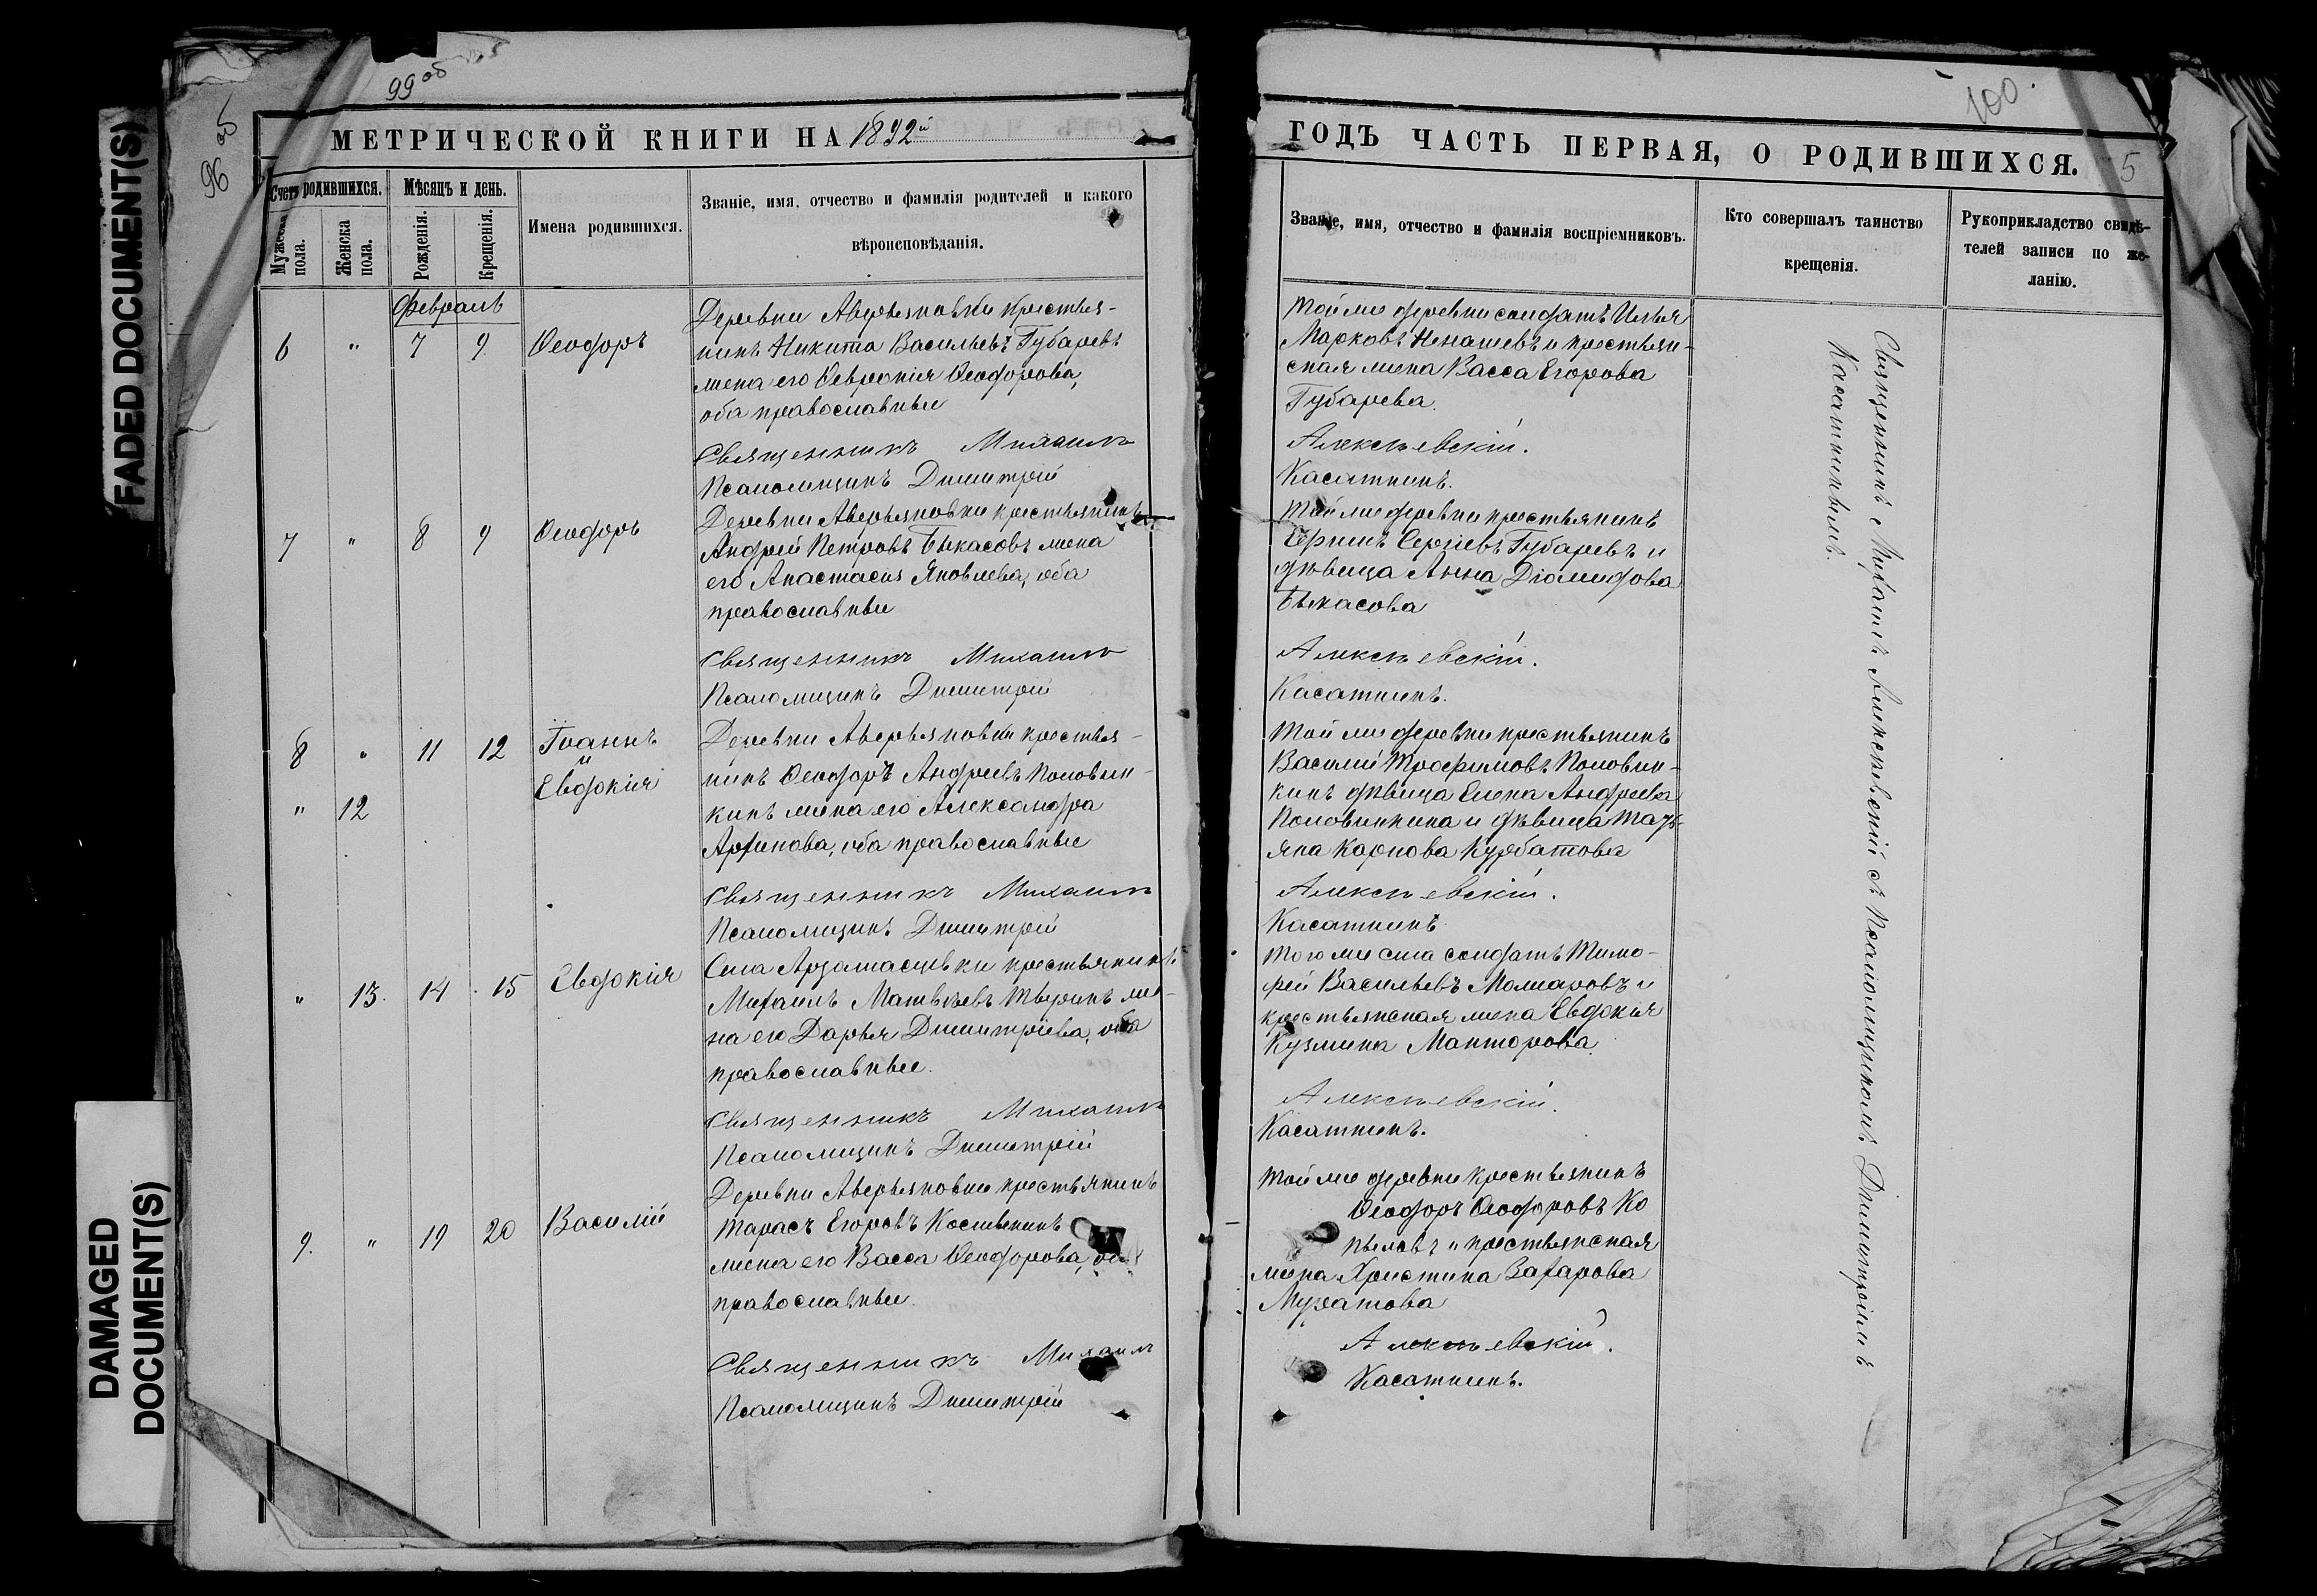 FADED DOCUMENT(S)
DAMAGED
DOCUMENT(S)
99 об
96 об
МЕТРИЧЕСКОЙ КНИГИ НА 1892й
Счетъ родившихся.
Мѣсяцъ и день.
Имена родившихся.
Званіе, имя, отчество и фамилія родителей и какого
вѣроисповѣданія.
Мужеска
пола.
Женска
пола.
Рожденія.
Крещенія.
Февраль
6 " 7 9 Ѳеодоръ
Деревни Аверьяновки крестья-
нинъ Никита Васильевъ Губаревъ
жена его Февронія Ѳеодорова,
оба православные
Священникъ Михаилъ
Псаломщикъ Димитрій
7 " 8 9 Ѳеодоръ
Деревни Аверьяновки крестьянинъ
Андрей Петровъ Бѣкасовъ жена
его Анастасія Яковлева, оба
православные
Священникъ Михаилъ
Псаломщикъ Димитрій
8 " 11 12 Іоаннъ
и
Евдокія
" 12
Деревни Аверьяновки крестья-
нинъ Ѳеодоръ Андреевъ Половин-
кинъ жена его Александра
оба православные
Священникъ Михаилъ
Псаломщикъ Димитрій
" 13. 14 15 Евдокія
Села Арзамасцевки крестьянинъ
Михаилъ Матвѣевъ Тверинъ же-
на его Дарья Димитріева, оба
православные.
Священникъ Михаилъ
Псаломщикъ Димитрій
9. " 19 20 Василій
Деревни Аверьяновки крестьянинъ
Тарасъ Егоровъ
жена его Васса Ѳеодорова, оба
православные.
Священникъ Михаилъ
Псаломщикъ Димитрій
100.
ГОДЪ ЧАСТЬ ПЕРВАЯ, О РОДИВШИХСЯ.
5
Званіе, имя, отчество и фамилія воспріемниковъ.
Кто совершалъ таинство
крещенія.
Рукоприкладство свидѣ-
телей записи по же-
ланію.
Той же деревни солдатъ Илья
Марковъ Ненашевъ и крестьян-
ская жена Васса Егорова
Губарева.
Алексѣевскій.
Касаткинъ.
Той же деревни крестьянинъ
Ефимъ Сергіевъ Губаревъ и
дѣвица Анна Діомидова
Бѣкасова
Алексѣевскій.
Касаткинъ.
Той же деревни крестьянинъ
Василій Трофимовъ Половин-
кинъ дѣвица Елена Андреева
Половинкина и дѣвица Тать-
яна Карпова Курбатова
Алексѣевскій.
Касаткинъ
Того же села солдатъ Тимо-
фей Васильевъ Маляровъ и
крестьянская жена Евдокія
Кузмина Манторова
Алексѣевскій.
Касаткинъ.
Той же деревни крестьянинъ
Ѳеодоръ Ѳеодоровъ Ко
пыловъ и крестьянская
жена Христина Захарова
Муратова
Алексѣевскій.
Касаткинъ.
Священникъ Михаилъ Алексѣевскій съ Псаломщикомъ Димитріемъ
Касаткинымъ.